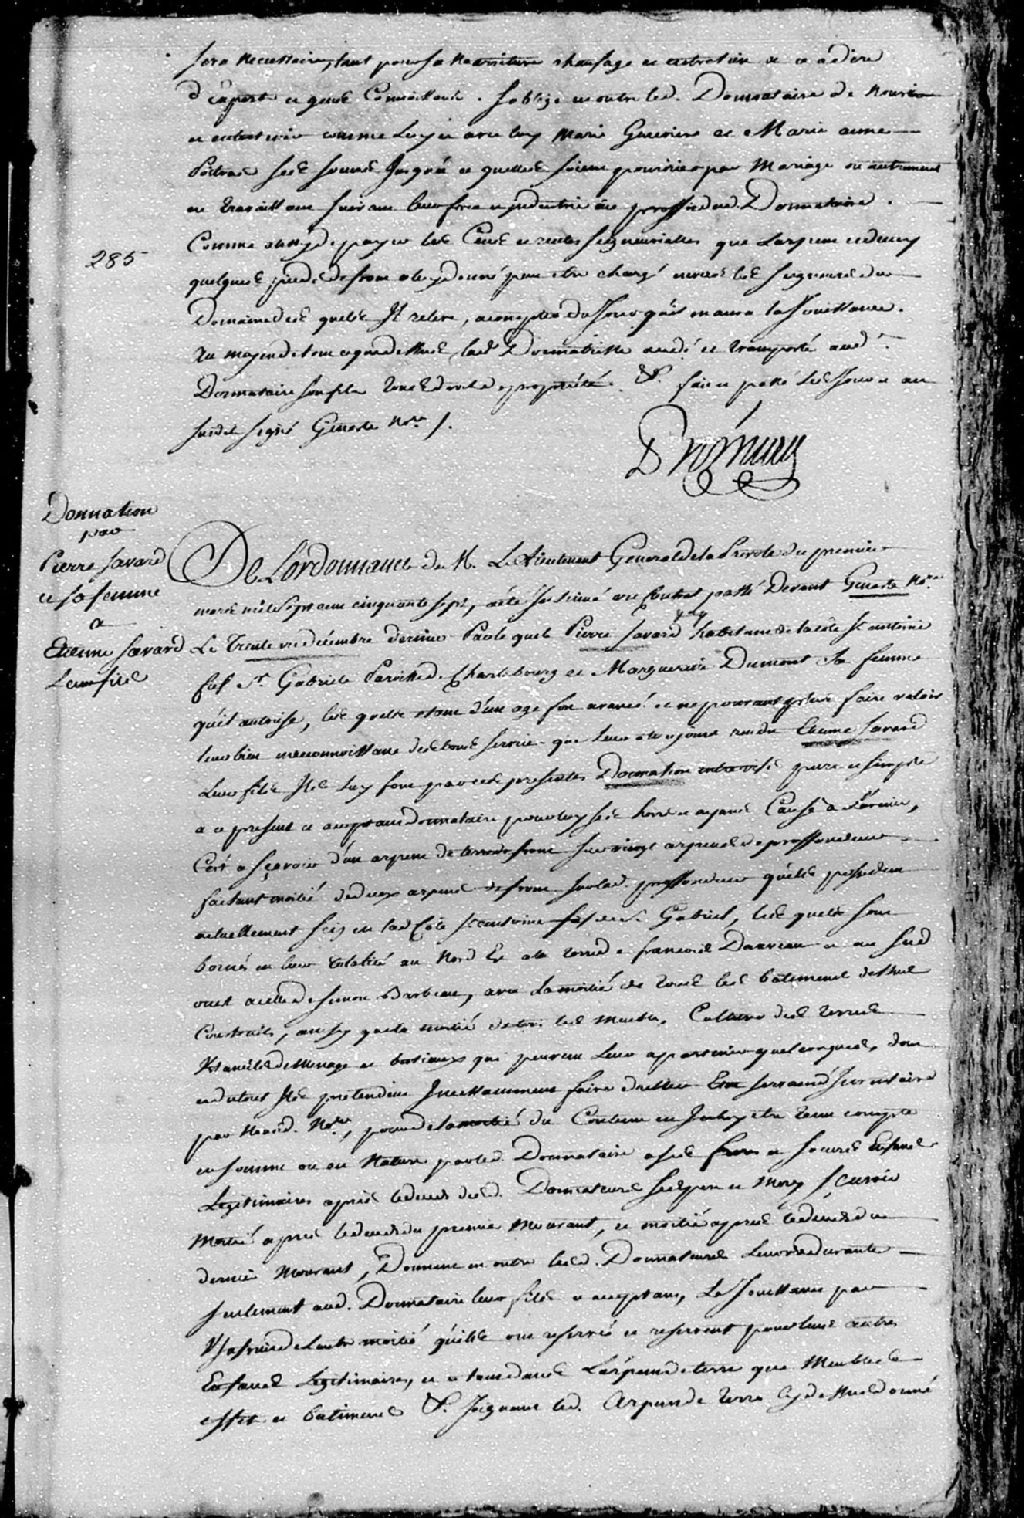 sera necessaire, tant pour sa nourriture chaufage et entretien et ce à dire
d'expert et gens Connoissants. Soblige en outre led. Donnataire de nourir
et entretenir comme luy et avec luy Marie Genevieve et Marie anne
Poitras ses soeurs Jusqu'à ce quelles soient pourvües par Mariage ou autrement
en travaillant suivant leur force et industrie au proffit dud. Donnataire.
Comme aussy de payer les Cens et rentes seigneurialles que Larpent et demy
quelques pieds de front cy donné peut etre chargé envers les seigneurs du
Domaine des quels Il releve, a compter du Jour qu'il en aura la Jouissance.
Au moyen de tout ce que dessus lad. Donnatrice a cedé et transporté aud.
Donnataire son fils tous droits de propriété &. fait et passé les Jour et an
susdit signé Genest Nre /.
285
Donnation
par
Pierre Savard
et sa femme
a
Etienne Savard
Leur fils
De Lordonnance de M. Le Lieutenant General de la Prevoté du premier
mars mil sept cent cinquante sept, a été Insinué un Contrat passé Devant Genest Nre.
Le Trente un décembre dernier Parle quel Pierre Savard habitant de la côte St. antoine
fief St. Gabriel Paroisse de Charlebourg et Marguerite Dumont sa femme
qu'il autorise, les quels etant d'un age fort avancé et ne pouvant plus faire valoir
leur bien en reconnoissance des bons services que leur a toujours rendu Etienne Savard
Leur fils Ils luy font par ces presentes Donnation entre vifs pure et simple
a ce present et acceptant donnataire pour luy ses hoirs et ayans Cause à L'avenir,
C'est a sçavoir d'un arpent de terre de front sur vingt arpens de proffondeur
faisant moitié de deux arpens de front sur lad. proffondeur qu'ils possedent
actuellement scis en lad. Côte St. antoine fief de St. Gabriel, les quels sont
bornés en leur totalité au Nord Est a la terre de francois Dauveau et au Sud
ouest a celle de Simon Barbeau, avec la moitié de tous les bâtiments dessus
Construits, aussy que la moitié de tous les meubles, Cultures des terres
Ustancils de Menage et bestiaux qui peuvent leur appartenir quelconques, dont
par Nottaire, pour de la moitié du Contenu en Iceluy etre tenu compte
en somme ou en Nature par led. Donnataire a ses freres et soeurs Enfans
Legitimaires après le deces desd. Donnateurs ses pere et Mere, sçavoir
Moitié apres le deces du premier Mourant, et moitié apres le deces du
dernier Mourant, Donnent en outre lesd. Donnateurs Leur vie durante
seulement aud. Donnataire leur fils et acceptant, la Jouissance par
Usufruit de l'autre moitié qu'ils ont reservé et reservent pour leurs autres
Enfans Legitimaires, et ce tant dans L'arpent de terre que Meubles
effets et batimens &. Joignant led. Arpent de terre Cy dessus donné